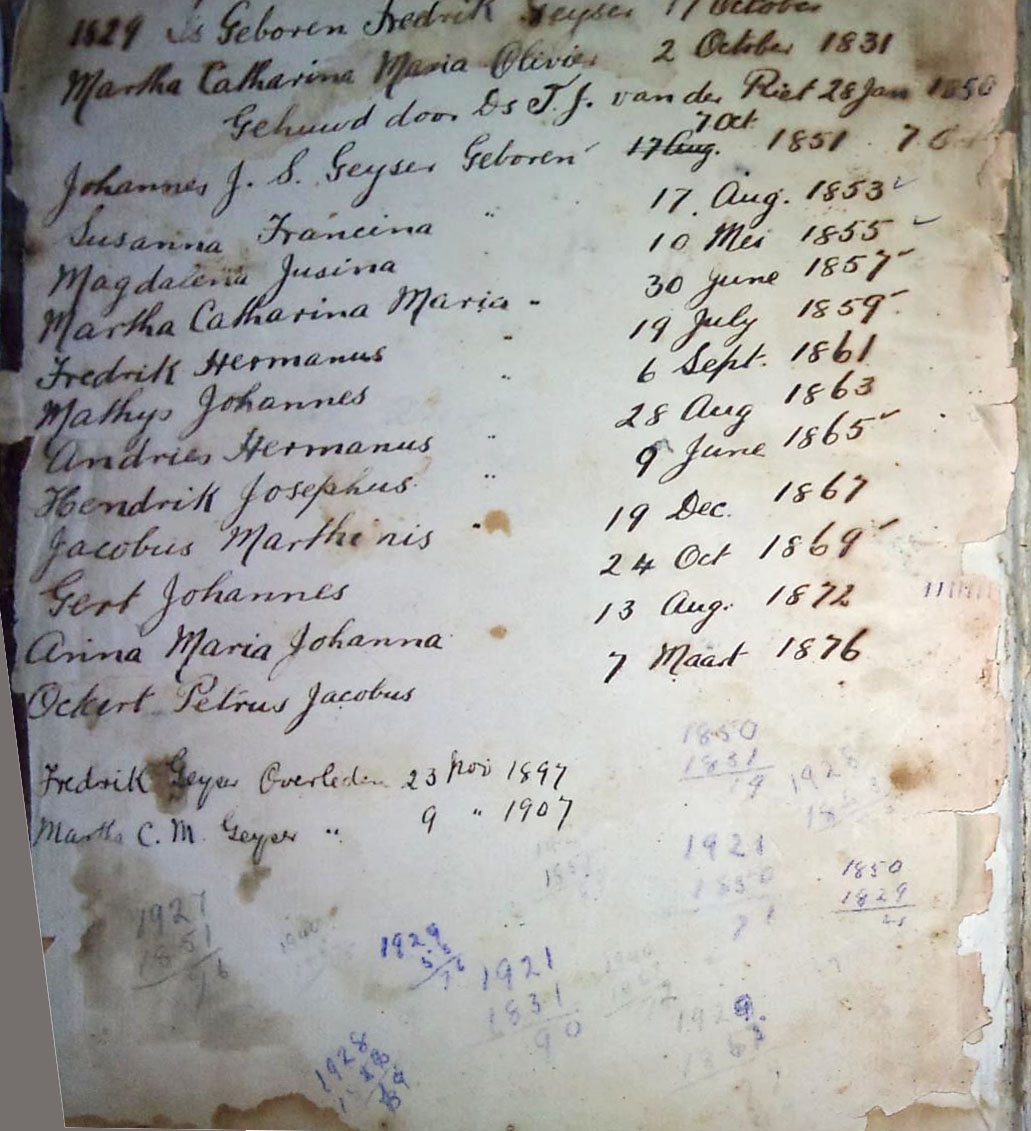 1829 Is Geboren Fredrik Geyser 17 October
Martha Catharina Maria Olivier 2 October 1831
Gehuwd door Ds T. J. van der Riet 28 Jan 1850
7 Oct.
Johannes J. S. Geyser Geboren 17 Aug. 1851 7
Susanna Francina " 17. Aug. 1853
Magdalena Jusina 10 Mei 1855
Martha Catharina Maria " 30 June 1857
Fredrik Hermanus " 19 July 1859
Mathys Johannes " 6 Sept. 1861
Andries Hermanus " 28 Aug 1863
Hendrik Josephus " 9 June 1865
Jacobus Marthinis " 19 Dec. 1867
Gert Johannes 24 Oct 1869
Anna Maria Johanna 13 Aug. 1872
Ockert Petrus Jacobus 7 Maart 1876
Fredrik Geyser Overleden 23 Nov 1897
Martha C. M. Geyser " 9 " 1907
1850
1831
19
1928
1921
1850
71
1850
1829
21
1927
1851
76
1929
1921
1831
90
1928